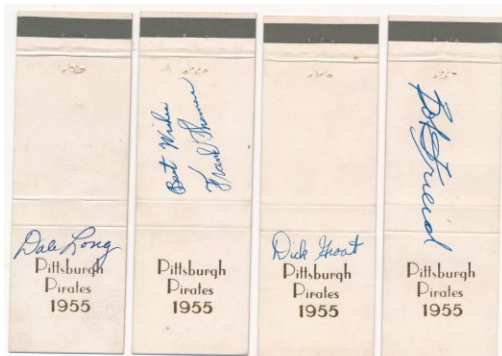 Dale Long
Pittsburgh
Pirates
1955
Best Wishes
Frank Thomas
Pittsburgh
Pirates
1955
Dick Groat
Pittsburgh
Pirates
1955
Bob Friend
Pittsburgh
Pirates
1955